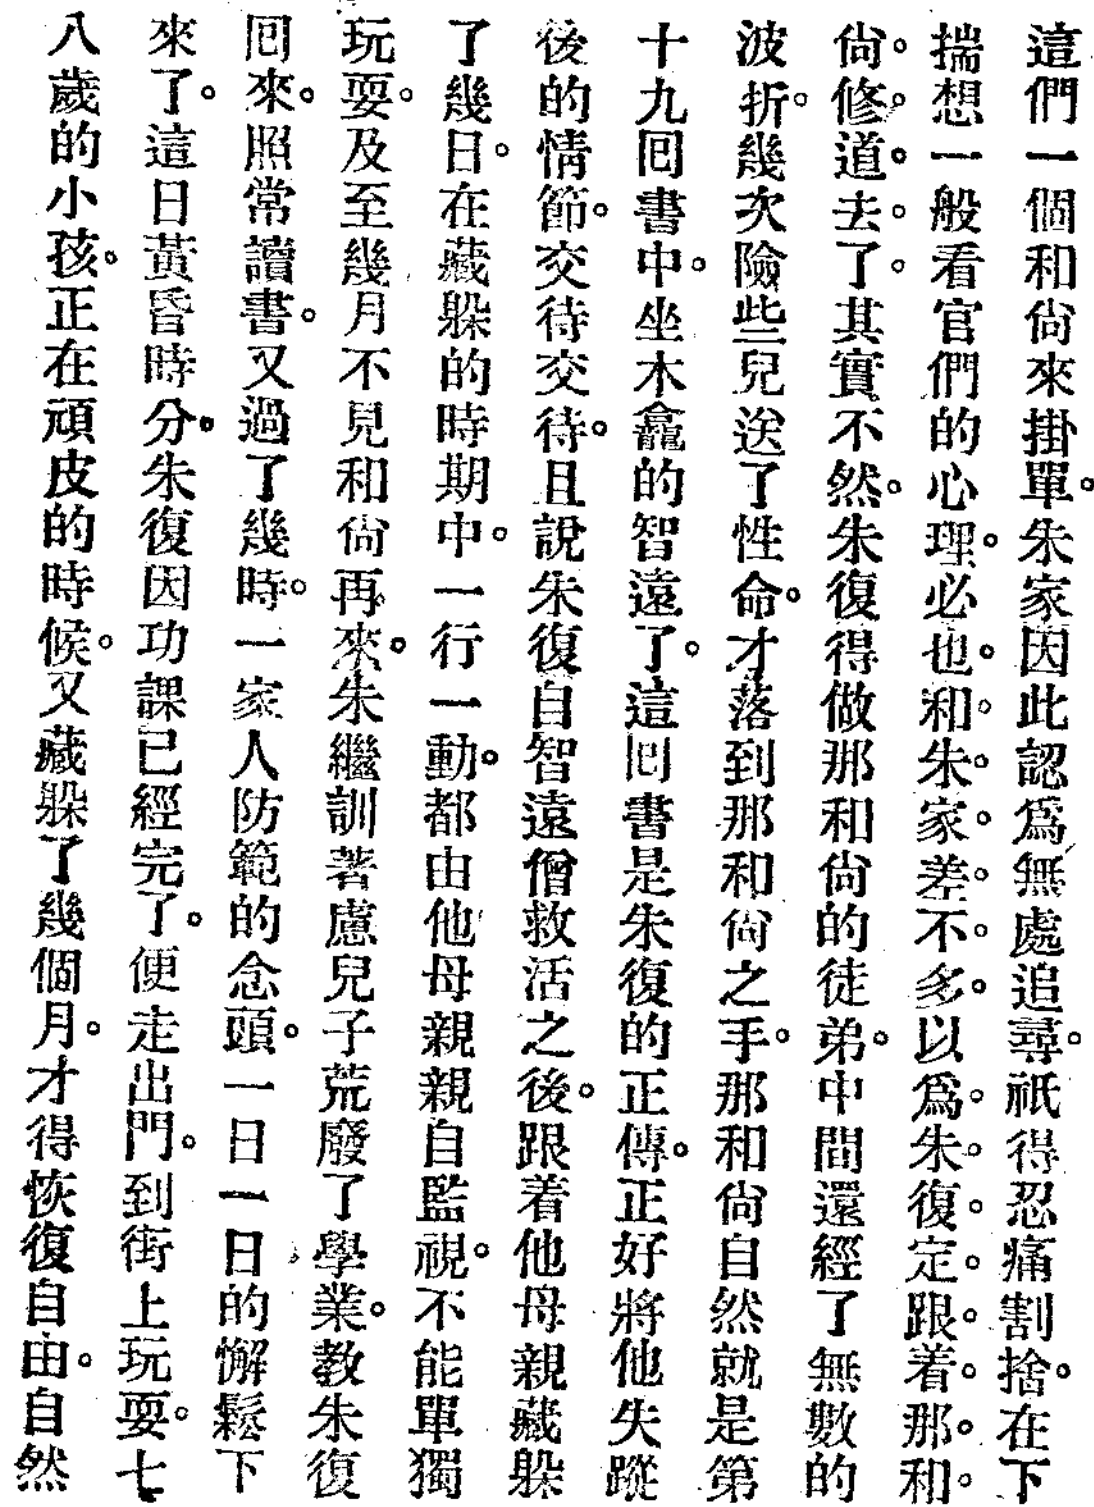 這們一個和尙來掛單。朱家因此認爲無處追尋。祇得忍痛割捨。在下
揣想一般看官們的心理。必也。和。朱。家。差。不。多。以爲。朱。復。定。跟。着。那。和。
尙。修。道。去。了。其實不然。朱復得做那和尙的徒弟。中間還經了無數的
波折。幾次險些兒送了性命。才落到那和尙之手。那和尙自然就是第
十九回書中。坐木龕的智遠了。這回書是朱復的正傳。正好將他失蹤
後的情節。交待交待。且說朱復自智遠僧救活之後。跟着他母親藏躲
了幾日。在藏躲的時期中。一行一動。都由他母親親自監視。不能單獨
玩耍。及至幾月不見和尙再來。朱繼訓著慮兒子荒廢了學業。教朱復
回來。照常讀書。又過了幾時。一家人防範的念頭。一日一日的懈鬆下
來了。這日黃昏時分。朱復因功課已經完了。便走出門。到街上玩耍。七
八歲的小孩。正在頑皮的時候。又藏躲了幾個月。才得恢復自由。自然